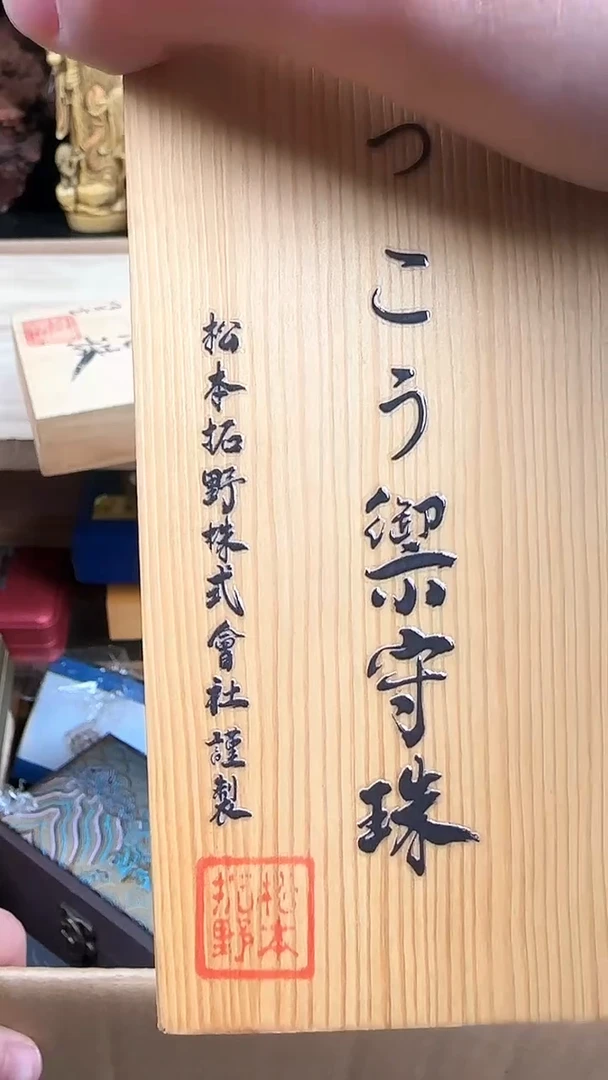 つこう禦守珠
松本拓野株式會社謹製
松本
拓野